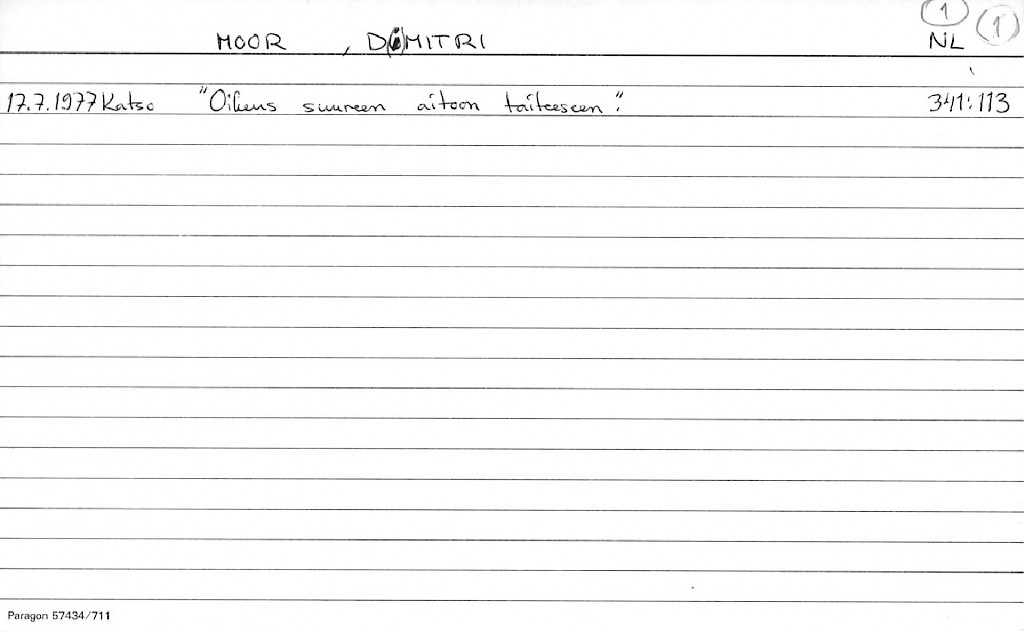 1 1
MOOR , D(i)MITRI NL
17.7.1977 Katso "Oikeus suureen aitoon taiteeseen". 341:113
Paragon 57434/711